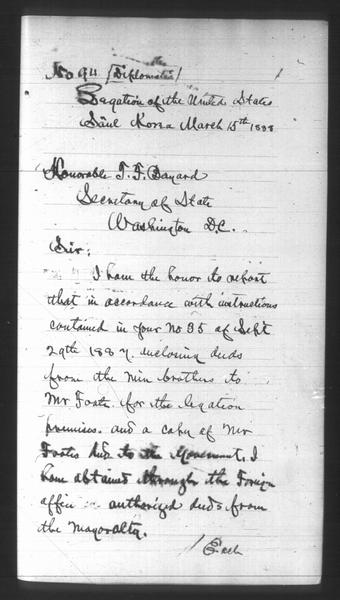 No 94 [Diplomatic]
Legation of the United States
Söul Korea March 15th 1888
Honorable T. F. Bayard
Secretary of State
Washington D.C.
Sir:
I have the honor to report
that in accordance with instructions
contained in your No 35 of Sept
29th 1887. inclosing deeds
from the Min brothers to
Mr Foote for the legation
premises. and a copy of Mr
Footes deed to the Government, I
have obtained through the Foreign
office authorized deeds from
the Mayoralty.
/Each